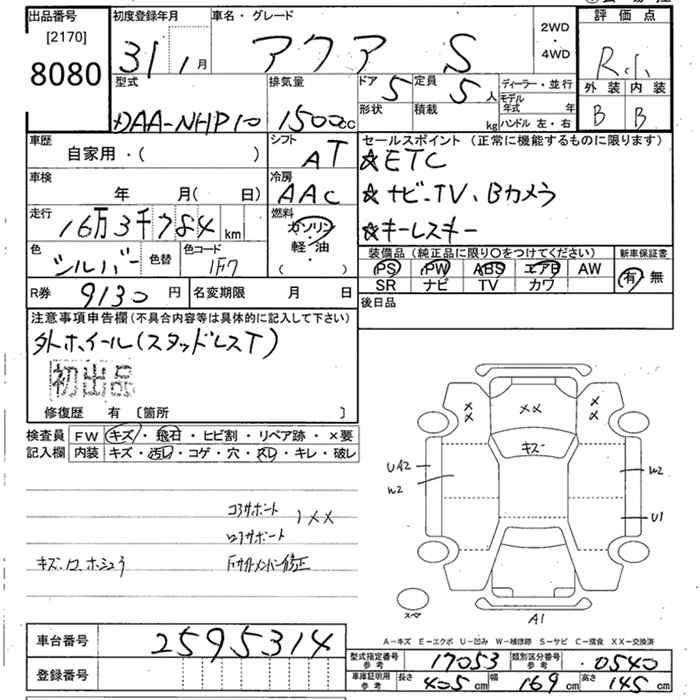 出品番号
[2170]
8080
初度登録年月
31 1月
車名・グレード
アクア S
2WD
・
4WD
評価点
R.
外装 内装
B B
型式
DAA-NHP10
排気量
1500cc
ドア 5
定員 5人
形状 積載 kg
ディーラー・並行
モデル年式 年
ハンドル 左・右
車歴
自家用・( )
シフト
AT
セールスポイント (正常に機能するものに限ります)
☆ETC
☆ナビ.TV、Bカメラ
☆キーレスキー
車検
年 月( 日)
冷房
AAC
走行
16万3千7 84km
燃料
ガソリン
軽・油
( )
色
シルバー
色替
色コード
1F7
装備品 (純正品に限り○をつけてください)
PS PW ABS エアB AW
SR ナビ TV カワ
新車保証書
有 無
R券 9130円
名変期限 月 日
後日品
注意事項申告欄(不具合内容等は具体的に記入して下さい)
外ホイール(スタッドレスT)
初出品
修復歴 有 〔箇所 〕
検査員
記入欄
FW キズ・飛石・ヒビ割・リペア跡・×要
内装 キズ・汚レ・コゲ・穴・スレ・キレ・破レ
コアサポート
ロアサポート
)××
キズ.ロ.ホシュウ
×× ×× ××
キズ
UA2
W2
W2
U1
スペア
A1
A-キズ E-エクボ U-凹み W-補修跡 S-サビ C-腐食 XX-交換済
車台番号 2595314
登録番号
型式指定番号 参考 17053
類別区分番号 参考 0540
車庫証明用 参考 長さ 405cm 幅 169cm 高さ 145cm